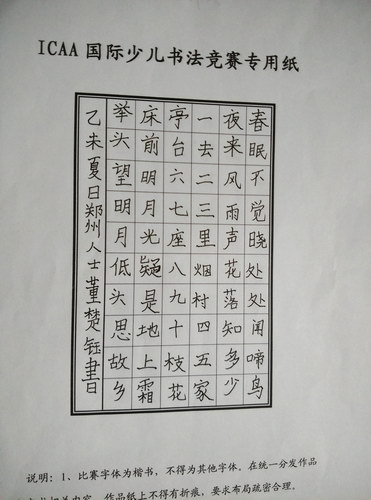 ICAA 国际少儿书法竞赛专用纸
春眠不觉晓处处闻啼鸟
夜来风雨声花落知多少
一去二三里烟村四五家
亭台六七座八九十枝花
床前明月光疑是地上霜
举头望明月低头思故乡
乙未夏日郑州人士董楚钰書
说明：1、比赛字体为楷书，不得为其他字体。在统一分发作品
相关内容，作品纸上不得有折痕，要求布局疏密合理。